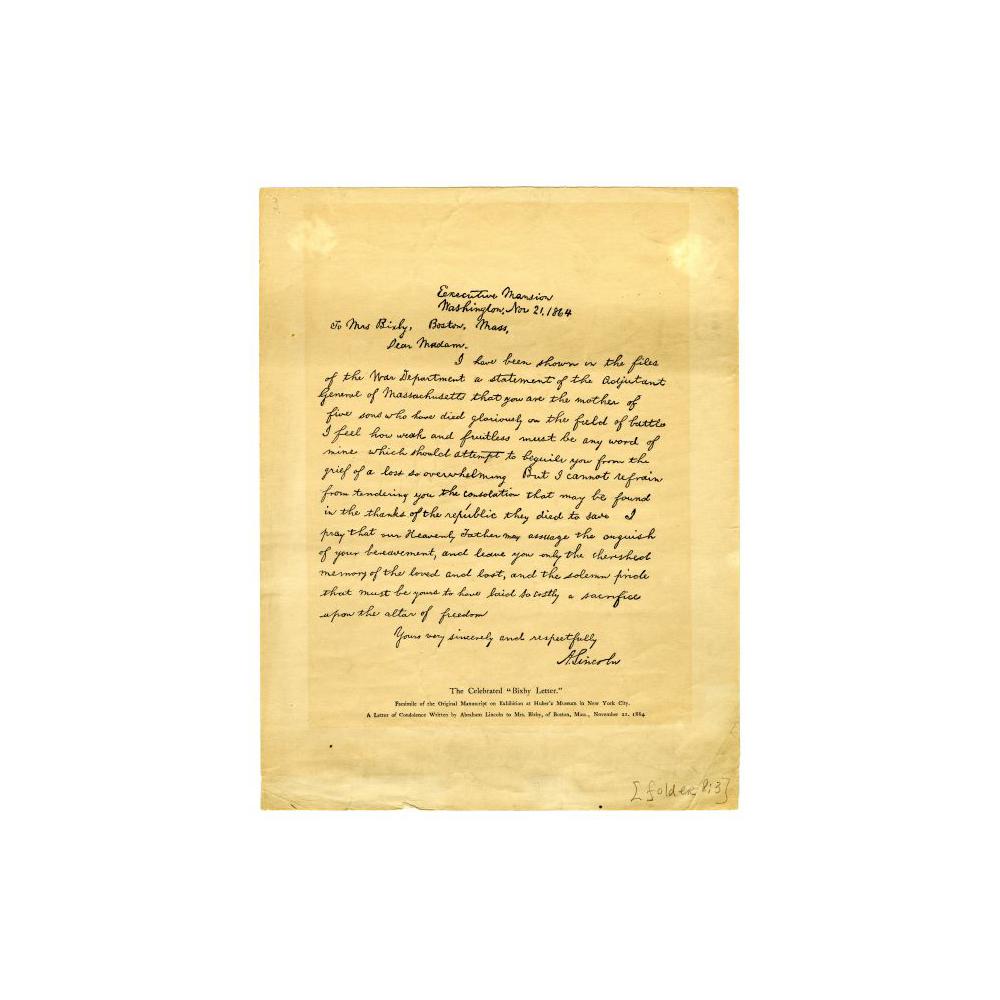 Executive Mansion
Washington, Nov 21, 1864
To Mrs Bixby, Boston, Mass,
Dear Madam.
I have been shown in the files
of the War Department a statement of the Adjutant
General of Massachusetts that you are the mother of
five sons who have died gloriously on the field of battle
I feel how weak and fruitless must be any word of
mine which should attempt to beguile you from the
grief of a loss so overwhelming But I cannot refrain
from tendering you the consolation that may be found
in the thanks of the republic they died to save I
pray that our Heavenly Father may assuage the anguish
of your bereavement, and leave you only the cherished
memory of the loved and lost, and the solemn pride
that must be yours to have laid so costly a sacrifice
upon the altar of freedom
Yours very sincerely and respectfully
A. Lincoln
The Celebrated "Bixby Letter."
Facsimile of the Original Manuscript on Exhibition at Huber's Museum in New York City.
A Letter of Condolence Written by Abraham Lincoln to Mrs. Bixby, of Boston, Mass., November 21, 1864.
[folder